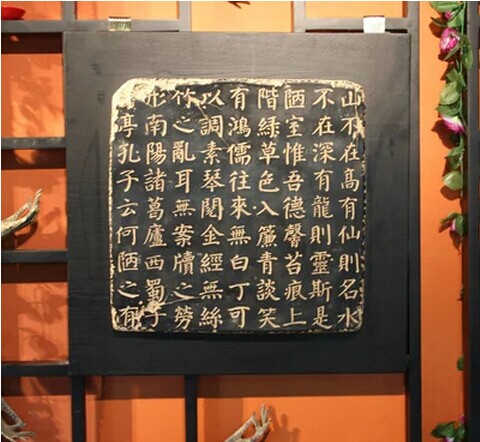 山不在高有仙則名水
不在深有龍則靈斯是
陋室惟吾德馨苔痕上
階綠草色入簾青談笑
有鴻儒往來無白丁可
以調素琴閱金經無絲
竹之亂耳無案牘之勞
形南陽諸葛廬西蜀子
亭孔子云何陋之有